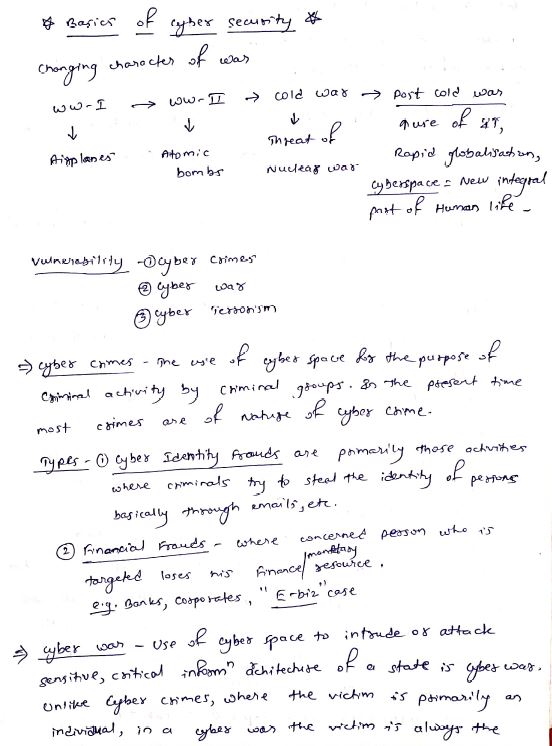 * Basics of cyber security *
Changing character of war
WW-I → WW-II → cold war → Post cold war
↓ ↓ ↓ ↑ use of IT,
Airplanes Atomic bombs Threat of Nuclear war Rapid globalisation,
cyberspace = New integral
part of Human life -
Vulnerability - ① cyber crimes
② cyber war
③ cyber Terrorism
⇒ cyber crimes - The use of cyber space for the purpose of
criminal activity by criminal groups. In the present time
most crimes are of nature of cyber crime.
Types - ① Cyber Identity Frauds are primarily those activities
where criminals try to steal the identity of persons
basically through emails, etc.
② Financial Frauds - where concerned person who is
targeted loses his finance/monetary resource.
e.g. Banks, Corporates, "E-biz" case
⇒ cyber war - Use of cyber space to intrude or attack
sensitive, critical informⁿ achitecture of a state is cyber war.
Unlike Cyber crimes, where the victim is primarily an
individual, in a cyber war the victim is always the